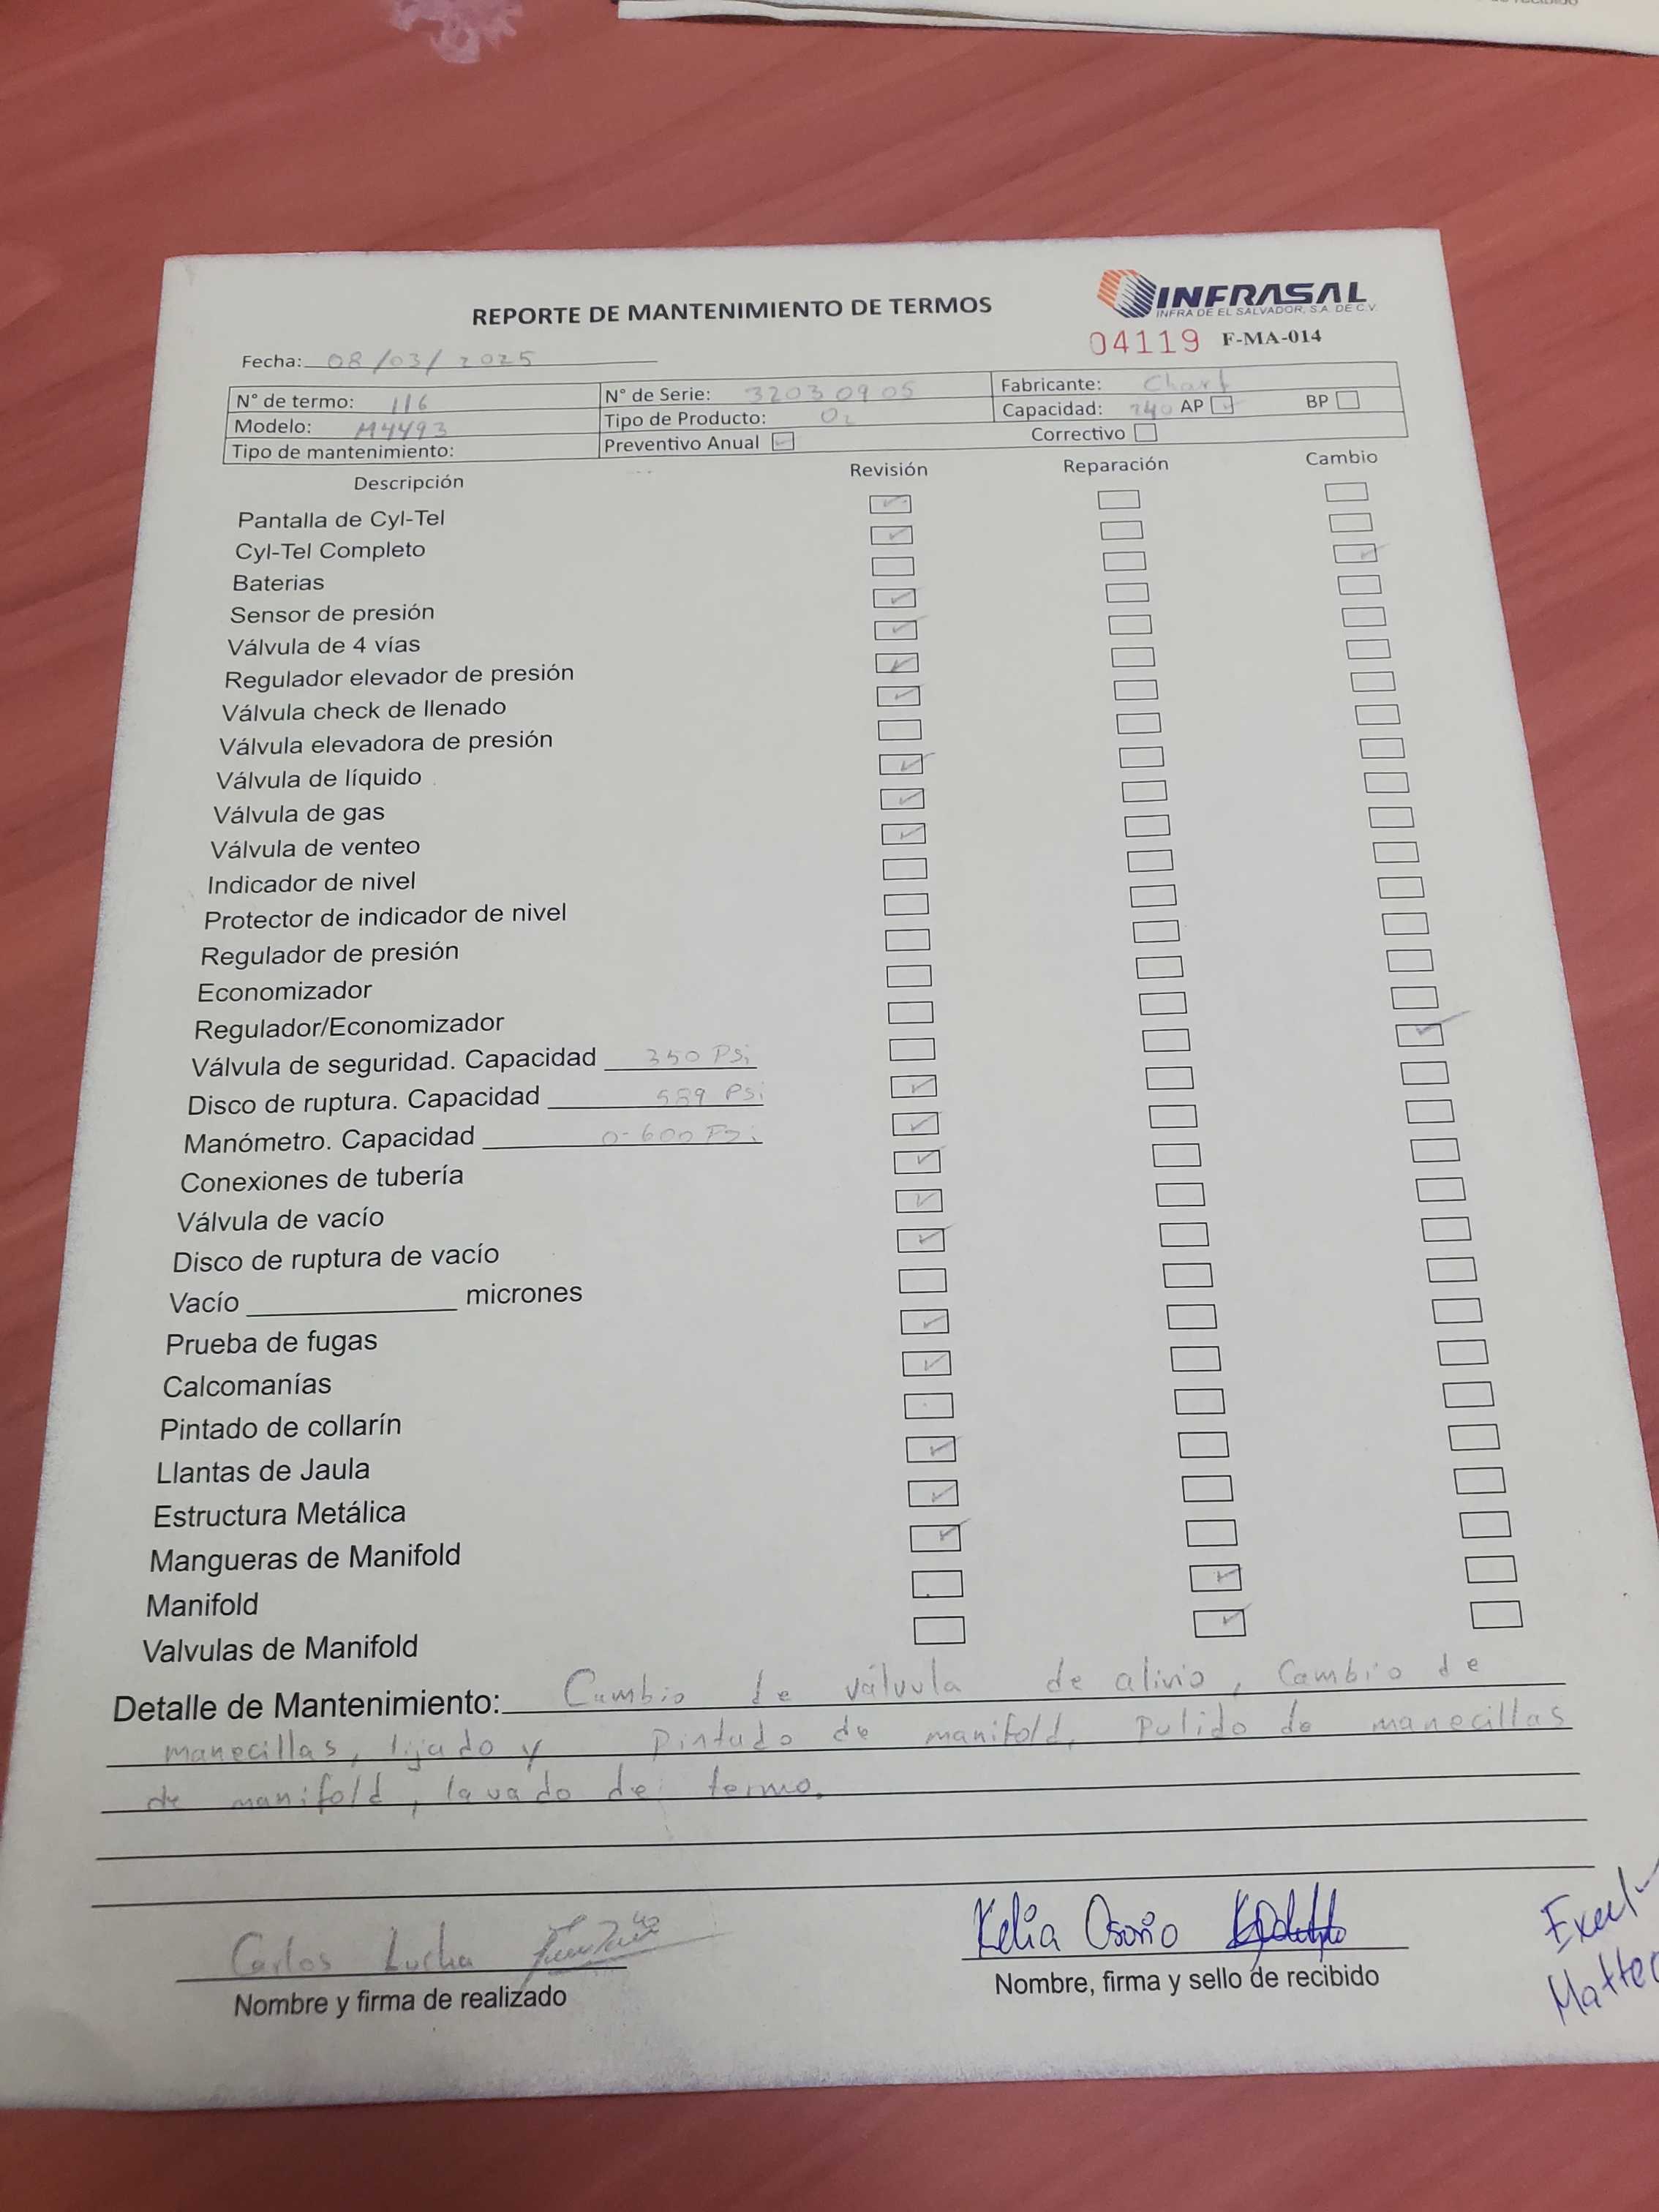 REPORTE DE MANTENIMIENTO DE TERMOS
INFRASAL
INFRA DE EL SALVADOR, S.A. DE C.V.
04119 F-MA-014
Fecha: 08/03/2025
N° de termo: 116 N° de Serie: 32030905 Fabricante: Chart
Modelo: M4493 Tipo de Producto: O2 Capacidad: 240 AP BP
Tipo de mantenimiento: Preventivo Anual Correctivo
Descripción Revisión Reparación Cambio
Pantalla de Cyl-Tel
Cyl-Tel Completo
Baterias
Sensor de presión
Válvula de 4 vías
Regulador elevador de presión
Válvula check de llenado
Válvula elevadora de presión
Válvula de líquido
Válvula de gas
Válvula de venteo
Indicador de nivel
Protector de indicador de nivel
Regulador de presión
Economizador
Regulador/Economizador
Válvula de seguridad. Capacidad 350 Psi
Disco de ruptura. Capacidad Psi
Manómetro. Capacidad 0-600 Psi
Conexiones de tubería
Válvula de vacío
Disco de ruptura de vacío
Vacío micrones
Prueba de fugas
Calcomanías
Pintado de collarín
Llantas de Jaula
Estructura Metálica
Mangueras de Manifold
Manifold
Valvulas de Manifold
Detalle de Mantenimiento: Cambio de válvula de alivio, Cambio de
manecillas, lijado y Pintado de manifold, Pulido de manecillas
de manifold, lavado de termo.
Carlos Kelia Osorio
Nombre y firma de realizado Nombre, firma y sello de recibido